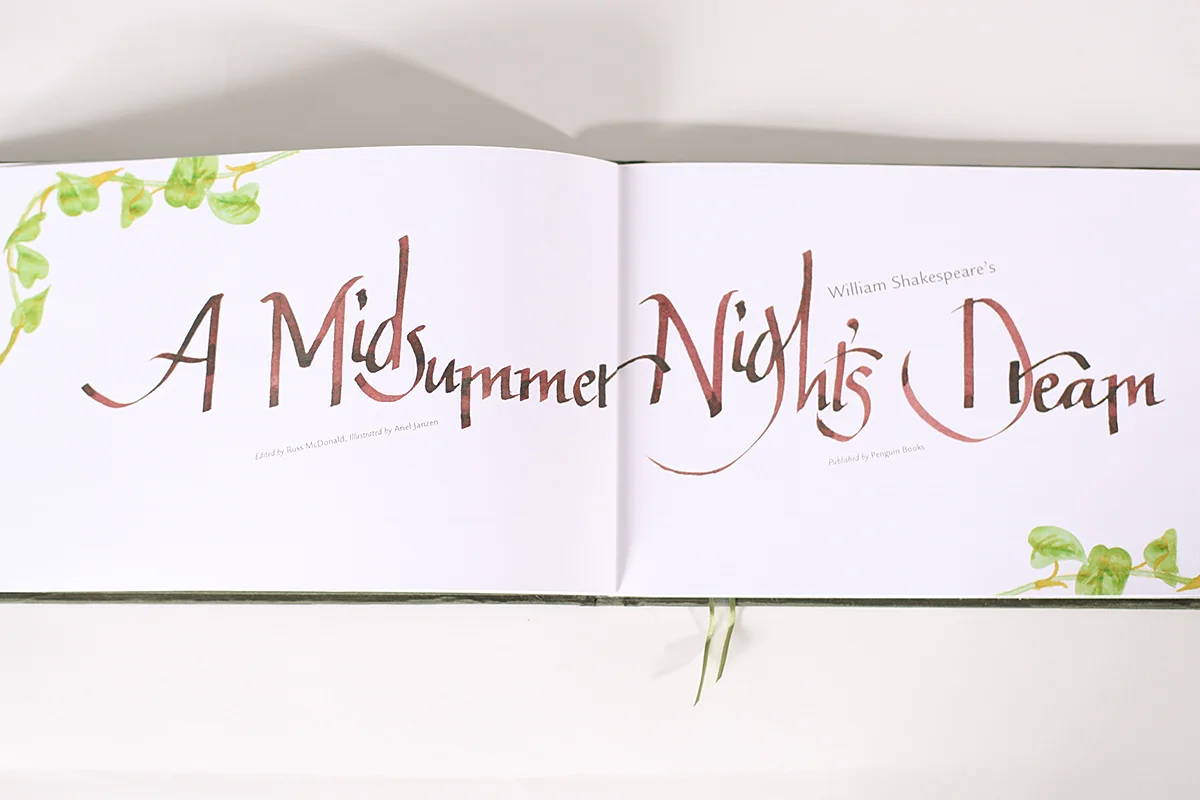 William Shakespeare's
A Midsummer Night's Dream
Edited by Russ McDonald, Illustrated by Anel Janzen
Published by Penguin Books